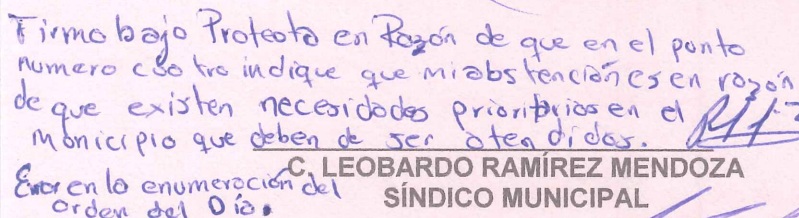 Firmo bajo Protesta en Razón de que en el punto
numero cuatro indique que mi abstención es en razón
de que existen necesidades prioritarias en el
Municipio que deben de ser atendidas.
C. LEOBARDO RAMÍREZ MENDOZA
SÍNDICO MUNICIPAL
Error en la enumeración del
orden del Día.